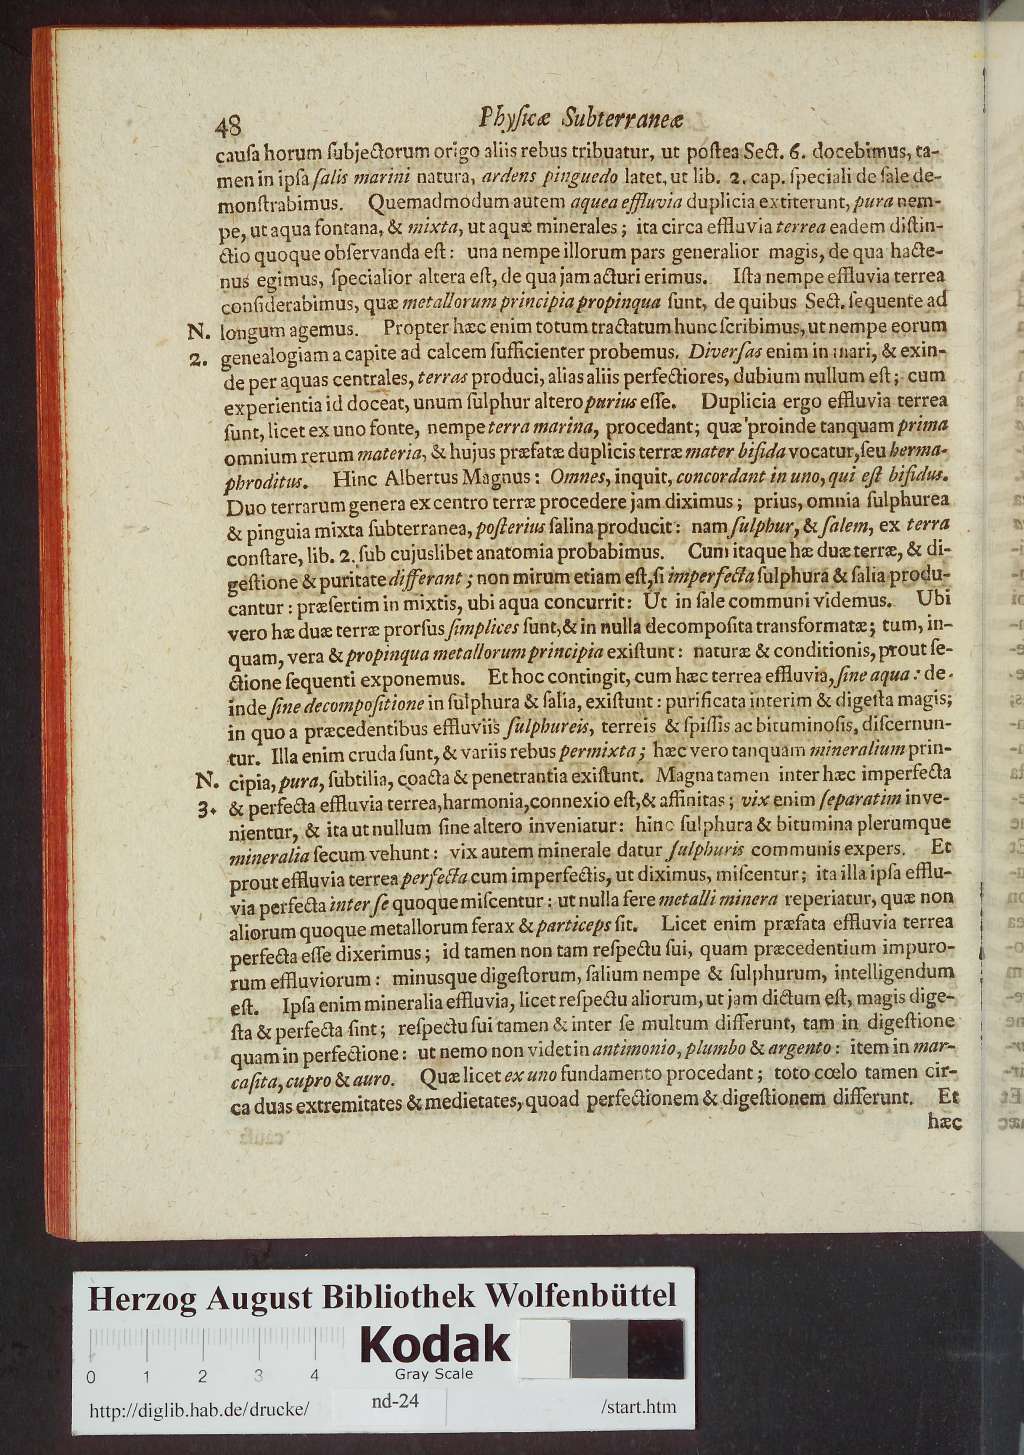 48
Phyſicæ Subterraneæ
cauſa horum ſubjectorum origo aliis rebus tribuatur, ut poſtea Sect. 6. docebimus, ta-
men in ipſa ſalis marini natura, ardens pinguedo latet, ut lib. 2. cap. ſpeciali de ſale de-
monſtrabimus. Quemadmodum autem aquea effluvia duplicia extiterunt, pura nem-
pe, ut aqua fontana, & mixta, ut aquæ minerales; ita circa effluvia terrea eadem diſtin-
ctio quoque obſervanda eſt: una nempe illorum pars generalior magis, de qua hacte-
nus egimus, ſpecialior altera eſt, de qua jam acturi erimus. Iſta nempe effluvia terrea
conſiderabimus, quæ metallorum principia propinqua ſunt, de quibus Sect. ſequente ad
N. longum agemus. Propter hæc enim totum tractatum hunc ſcribimus, ut nempe eorum
2. genealogiam a capite ad calcem ſufficienter probemus. Diverſas enim in mari, & exin-
de per aquas centrales, terras produci, alias aliis perfectiores, dubium nullum eſt; cum
experientia id doceat, unum ſulphur altero purius eſſe. Duplicia ergo effluvia terrea
ſunt, licet ex uno fonte, nempe terra marina, procedant; quæ proinde tanquam prima
omnium rerum materia, & hujus præfatæ duplicis terræ mater bifida vocatur, ſeu herma-
phroditus. Hinc Albertus Magnus: Omnes, inquit, concordant in uno, qui eſt bifidus.
Duo terrarum genera ex centro terræ procedere jam diximus; prius, omnia ſulphurea
& pinguia mixta ſubterranea, poſterius ſalina producit: nam ſulphur, & ſalem, ex terra
conſtare, lib. 2. ſub cujuslibet anatomia probabimus. Cum itaque hæ duæ terræ, & di-
geſtione & puritate differant; non mirum etiam eſt, ſi imperfecta ſulphura & ſalia produ-
cantur: præſertim in mixtis, ubi aqua concurrit: Ut in ſale communi videmus. Ubi
vero hæ duæ terræ prorſus ſimplices ſunt, & in nulla decompoſita transformatæ; tum, in-
quam, vera & propinqua metallorum principia exiſtunt: naturæ & conditionis, prout ſe-
ctione ſequenti exponemus. Et hoc contingit, cum hæc terrea effluvia, ſine aqua: de-
inde ſine decompoſitione in ſulphura & ſalia, exiſtunt: purificata interim & digeſta magis;
in quo a præcedentibus effluviis ſulphureis, terreis & ſpiſſis ac bituminoſis, diſcernun-
tur. Illa enim cruda ſunt, & variis rebus permixta; hæc vero tanquam mineralium prin-
N. cipia, pura, ſubtilia, coacta & penetrantia exiſtunt. Magna tamen inter hæc imperfecta
3. & perfecta effluvia terrea, harmonia, connexio eſt, & affinitas; vix enim ſeparatim inve-
nientur, & ita ut nullum ſine altero inveniatur: hinc ſulphura & bitumina plerumque
mineralia ſecum vehunt: vix autem minerale datur ſulphuris communis expers. Et
prout effluvia terrea perfecta cum imperfectis, ut diximus, miſcentur; ita illa ipſa efflu-
via perfecta inter ſe quoque miſcentur: ut nulla fere metalli minera reperiatur, quæ non
aliorum quoque metallorum ferax & particeps ſit. Licet enim præfata effluvia terrea
perfecta eſſe dixerimus; id tamen non tam reſpectu ſui, quam præcedentium impuro-
rum effluviorum: minusque digeſtorum, ſalium nempe & ſulphurum, intelligendum
eſt. Ipſa enim mineralia effluvia, licet reſpectu aliorum, ut jam dictum eſt, magis dige-
ſta & perfecta ſint; reſpectu ſui tamen & inter ſe multum differunt, tam in digeſtione
quam in perfectione: ut nemo non videt in antimonio, plumbo & argento: item in mar-
caſita, cupro & auro. Quæ licet ex uno fundamento procedant; toto cœlo tamen cir-
ca duas extremitates & medietates, quoad perfectionem & digeſtionem differunt. Et
hæc
Herzog August Bibliothek Wolfenbüttel
Kodak
Gray Scale
0 1 2 3 4
http://diglib.hab.de/drucke/ nd-24 /start.htm